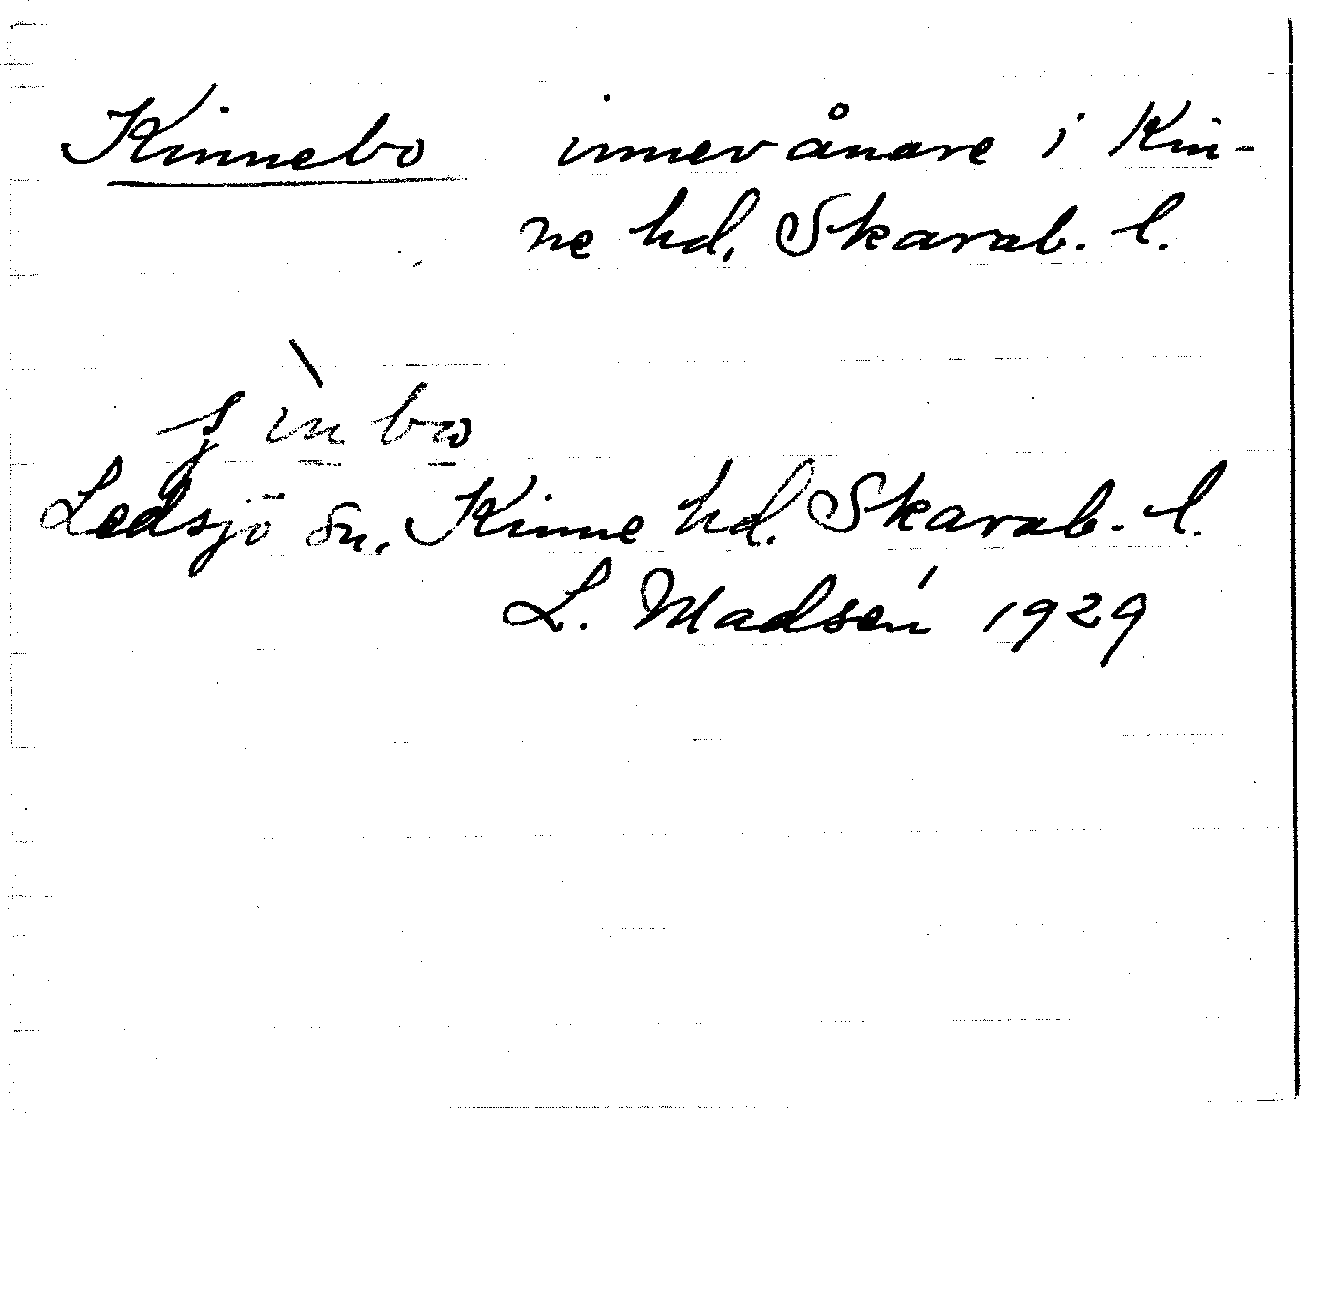 Kinnebo innevånare i Kin-
ne hd, Skarab. l.
Ledsjö sn, Kinne hd. Skarab. l.
L. Madsén 1929